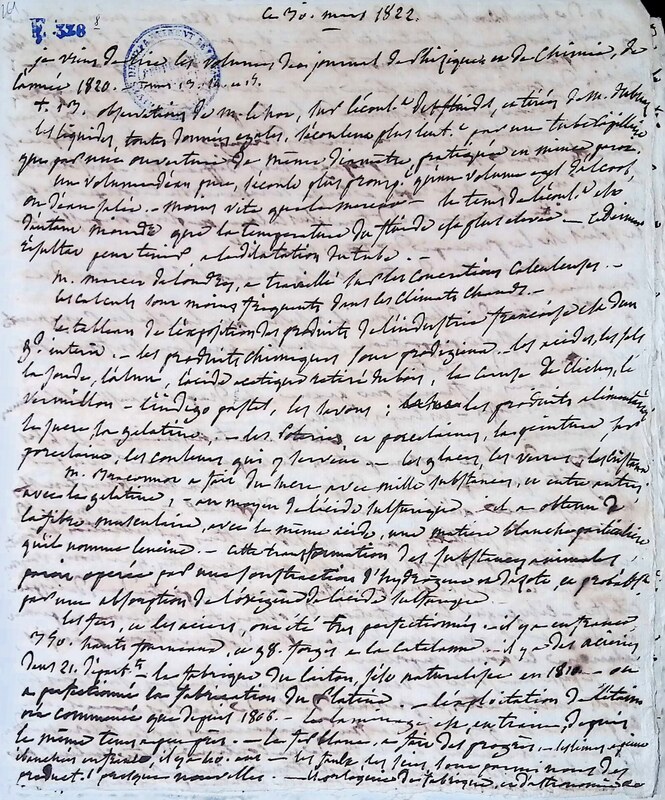 ce 30. mars 1822.
R. 338
je viens de lire les volumes du journal de Phisique et de Chimie, de
l'année 1820. 13. 14. et 15.
t. 13. observations de m. sur l'écoul.t des fluides, de m.
les liquides, toutes données égales, s'écoulent plus lent.t par un tube
que par une ouverture de même diamètre, pratiquée en mince paroi.
un volume d'eau pure, s'écoule plus promp. qu'un volume égal d'alcool,
ou d'eau salée. moins vite que le mercure — le tems de l'écoul.t est
d'autant moindre que la température du fluide est plus élevée —
résulter pour tenir à la dilatation du tube. —
m. marcet de Londres, a travaillé sur les concrétions calculeuses. —
les calculs sont moins fréquents dans les climats chauds. —
le tableau de l'exposition des produits de l'industrie françoise est d'un
g.d intérêt. — les produits chimiques sont prodigieux. — les acides, les sels
la soude, l'alun, l'acide acétique retiré du bois, la céruse de Clichy, le
vermillon — l'indigo pastel, les savons ; les produits alimentaires
le sucre, la gélatine. — les Poteries, et porcelaines, la peinture, sur
porcelaine, les couleurs qui y servent — les glaces, les verres, les cristaux
m. Braconnot a fait du sucre avec mille substances, et entre autres
avec la gélatine, — au moyen de l'acide sulfurique. il a obtenu de
la fibre musculaire, avec le même acide, une matière blanche particulière
qu'il nomme leucine. — cette transformation des substances animales,
paroit opérée par une soustraction d'hydrogène et d'azote, et probabl.t
par une absorption de l'oxigène de l'acide sulfurique.
les fers, et les aciers, ont été très perfectionnés — il y a en france
350. hauts fourneaux, et 98. forges à la catalane — il y a des aciéries
dans 21. départ.ts — la fabrique du laiton, s'est naturalisée en 1810 — on
a perfectionné la fabrication du Platine. — l'exploitation de l'étain
n'a commencé que depuis 1806. — le laminage est, en france, depuis
le même tems à peu près. — le fer blanc, a fait des progrès. — les limes à peine
ébauchées il y a 20. ans — les faulx, les scies, sont parmi nous des
produits presque nouvelles. — l'horlogerie de fabrique, et d'astronomie